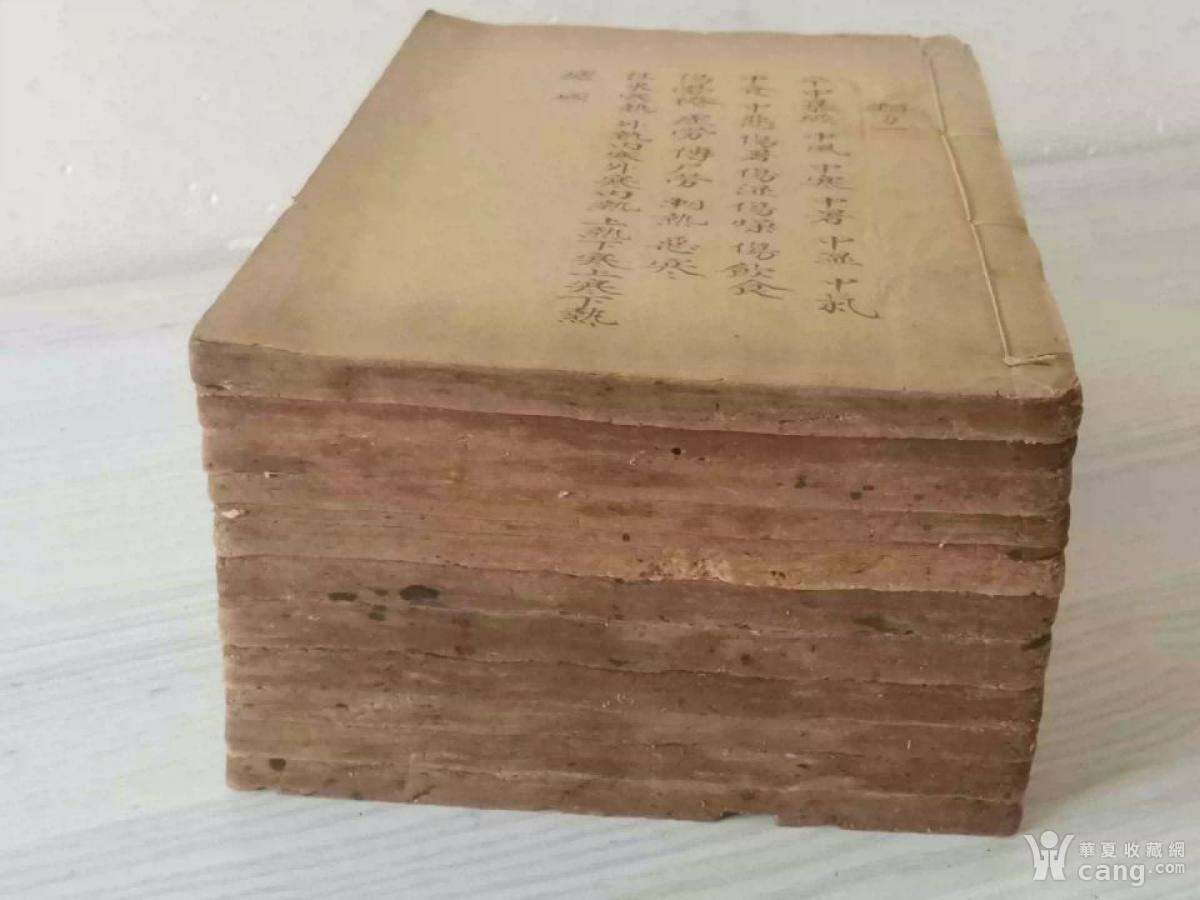 類方
卒中暴厥 中風 中寒 中暑 中濕 中氣
中食 中惡 傷暑 傷濕 傷燥 傷飲食
傷勞倦 虛勞 傳尸勞 熱 惡寒
往來寒熱 外熱內寒外寒內熱 上熱下寒上寒下熱
瘧
華夏收藏網
cang.com